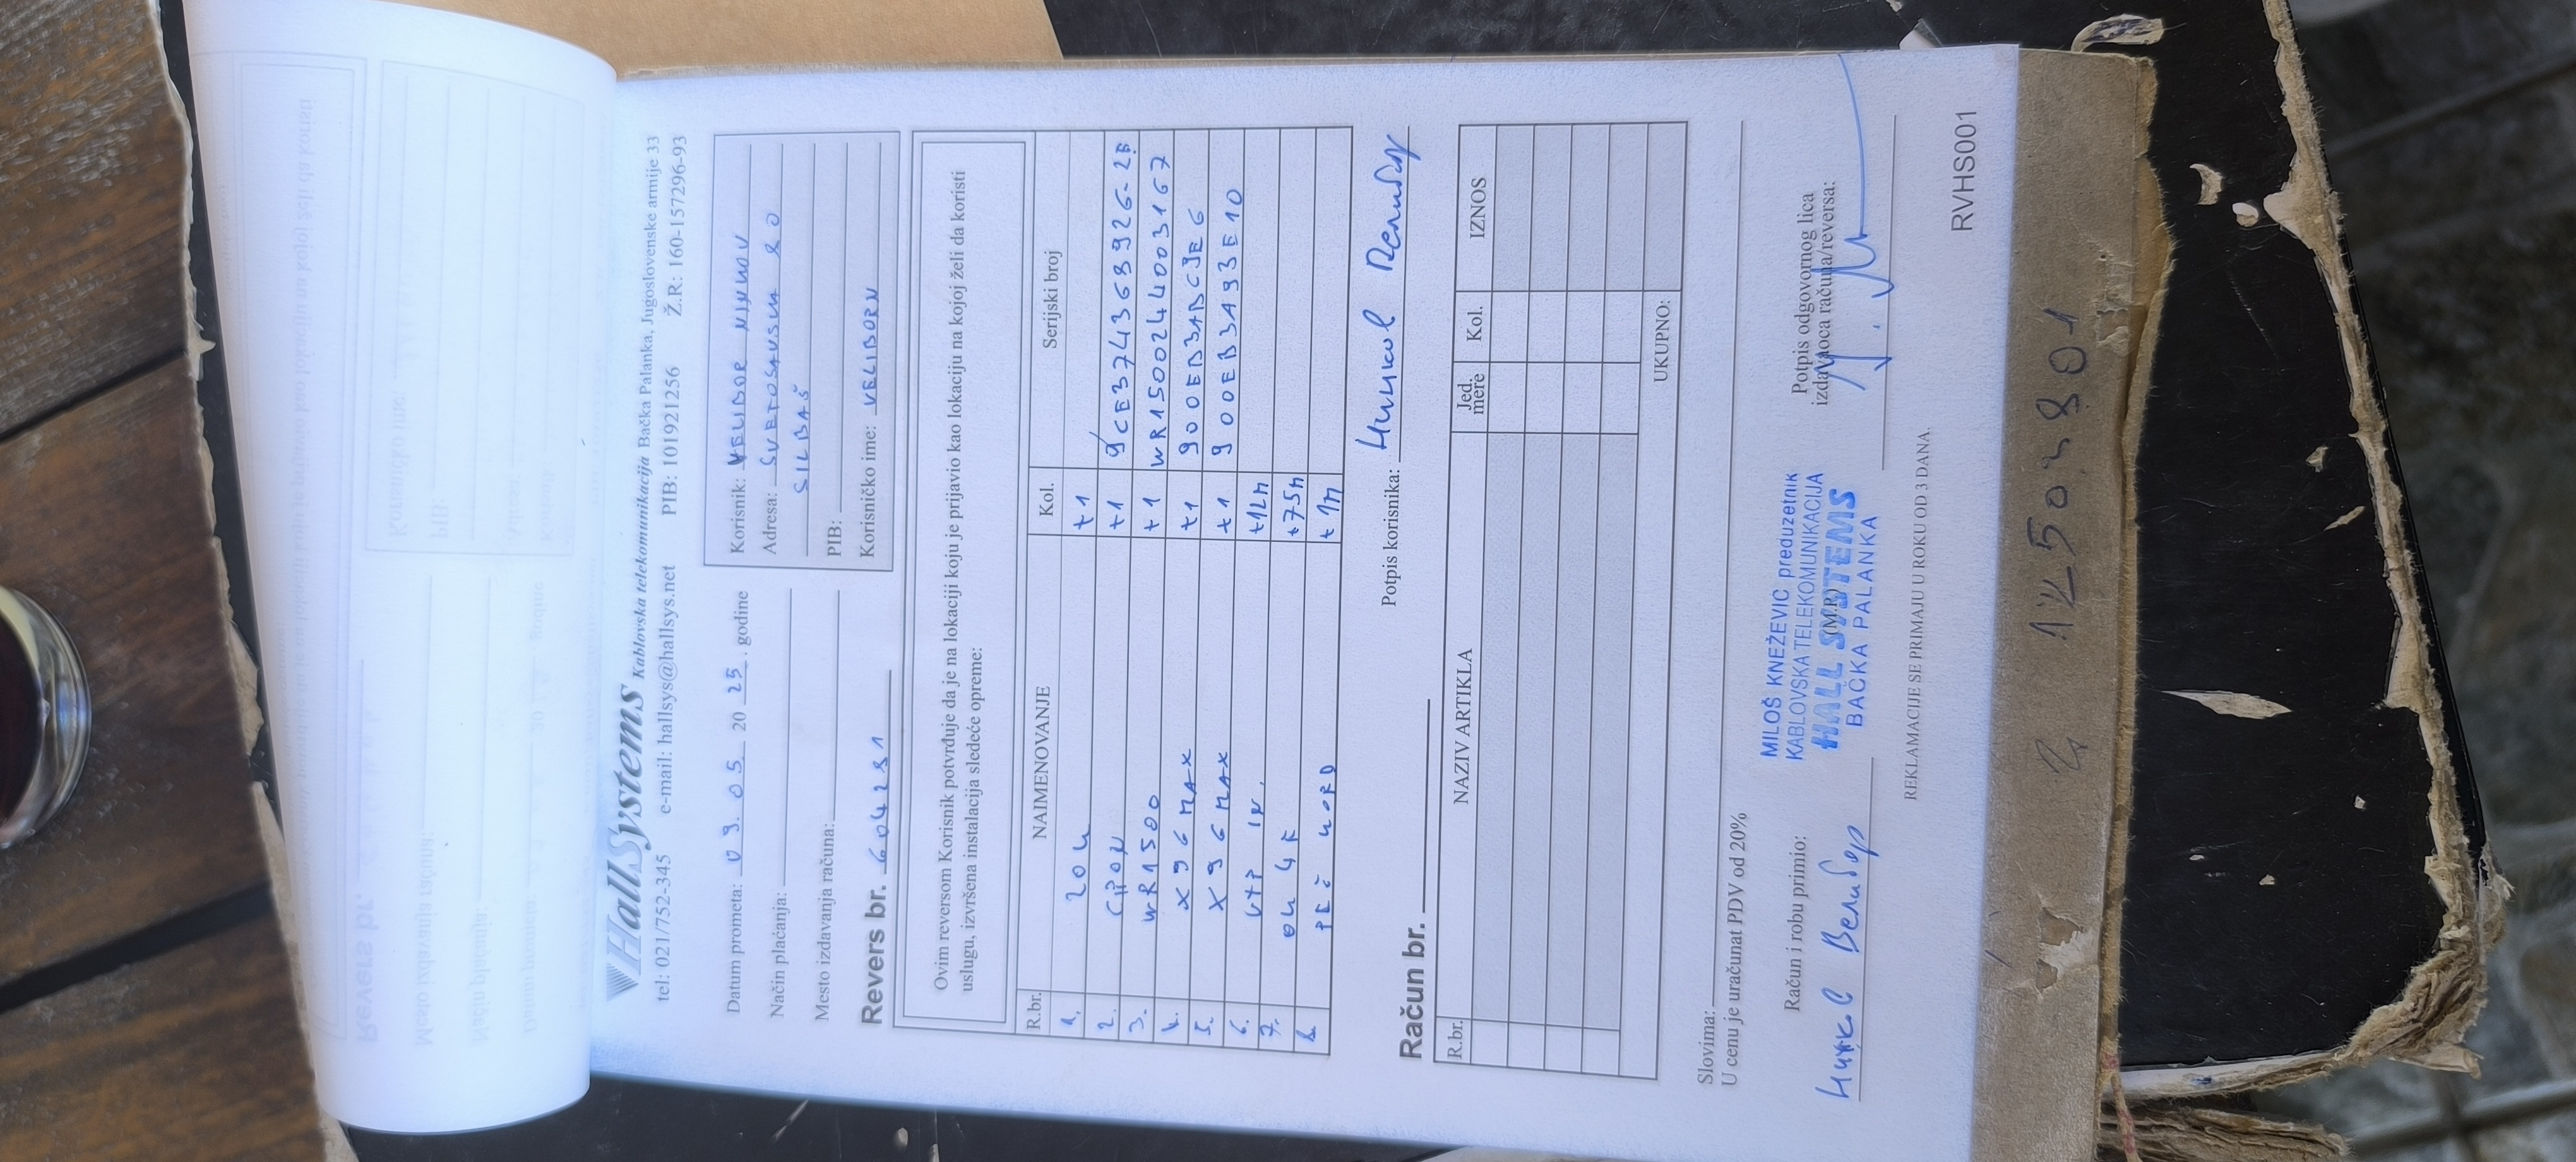 HallSystems Kablovska telekomunikacija Bačka Palanka, Jugoslovenske armije 33
tel: 021/752-345 e-mail: hallsys@hallsys.net PIB: 101921256 Ž.R: 160-157296-93
Datum prometa: 09. 05 2025. godine
Način plaćanja:
Mesto izdavanja računa:
Korisnik: VELIBOR NINKOV
Adresa: SVETOSAVSKA 80
SILBAŠ
PIB:
Korisničko ime: VELIBORN
Revers br.
Ovim reversom Korisnik potvrđuje da je na lokaciji koju je prijavio kao lokaciju na kojoj želi da koristi
uslugu, izvršena instalacija sledeće opreme:
R.br. NAIMENOVANJE Kol. Serijski broj
1. +1
2. +1
3. WR1500 +1 WR1500244003167
4. X96 MAX +1
5. X96 MAX +1 900EB3A93E10
6. UTP +12m
7. +75m
8. +1m
Potpis korisnika: Нинков Велибор
Račun br.
R.br. NAZIV ARTIKLA Jed. mere Kol. IZNOS
UKUPNO:
Slovima:
U cenu je uračunat PDV od 20%
Račun i robu primio:
Нинков Велибор
MILOŠ KNEŽEVIĆ preduzetnik
KABLOVSKA TELEKOMUNIKACIJA
HALL SYSTEMS
BAČKA PALANKA
(M.P.)
Potpis odgovornog lica
izdavaoca računa/reversa:
REKLAMACIJE SE PRIMAJU U ROKU OD 3 DANA.
RVHS001